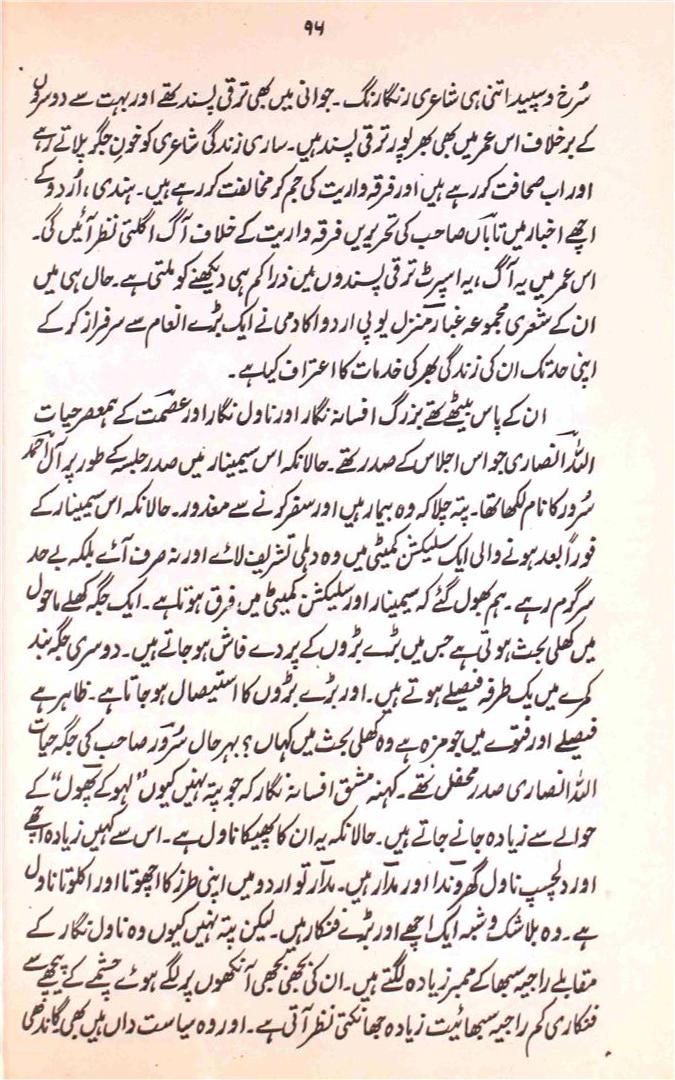 ۹۶
سُرخ و سپید اتنی ہی شاعری رنگا رنگ۔ جوانی میں بھی ترقی پسند تھے اور بہت سے دوسروں
کے برخلاف اس عمر میں بھی بھرپور ترقی پسند ہیں۔ ساری زندگی شاعری کو خونِ جگر پلاتے رہے
اور اب صحافت کر رہے ہیں اور فرقہ واریت کی جم کر مخالفت کر رہے ہیں۔ ہندی، اُردو کے
اچھے اخبار میں تاباں صاحب کی تحریریں فرقہ واریت کے خلاف آگ اگلتی نظر آئیں گی۔
اس عمر میں یہ آگ، یہ اسپرٹ ترقی پسندوں میں ذرا کم ہی دیکھنے کو ملتی ہے۔ حال ہی میں
ان کے شعری مجموعہ غبارِ منزل یو پی اردو اکادمی نے ایک بڑے انعام سے سرفراز کر کے
اپنی حد تک ان کی زندگی بھر کی خدمات کا اعتراف کیا ہے۔
ان کے پاس بیٹھے تھے بزرگ افسانہ نگار اور ناول نگار اور عصمت کے ہمعصر حیات
اللہ انصاری جو اس اجلاس کے صدر تھے۔ حالانکہ اس سیمینار میں صدر جلسہ کے طور پر آل احمد
سُرور کا نام لکھا تھا۔ پتہ چلا کہ وہ بیمار ہیں اور سفر کرنے سے معذور۔ حالانکہ اس سیمینار کے
فوراً بعد ہونے والی ایک سلیکشن کمیٹی میں وہ دہلی تشریف لائے اور نہ صرف آئے بلکہ بے حد
سرگرم رہے۔ ہم بھول گئے کہ سیمینار اور سلیکشن کمیٹی میں فرق ہوتا ہے۔ ایک جگہ کھلے ماحول
میں کھلی بحث ہوتی ہے جس میں بڑے بڑوں کے پردے فاش ہو جاتے ہیں۔ دوسری جگہ بند
کمرے میں یک طرفہ فیصلے ہوتے ہیں۔ اور بڑے بڑوں کا استیصال ہو جاتا ہے۔ ظاہر ہے
فیصلے اور فتوے میں جو مزہ ہے وہ کھلی بحث میں کہاں؟ بہر حال سُرور صاحب کی جگہ حیات
اللہ انصاری صدر محفل تھے۔ کہنہ مشق افسانہ نگار کہ جو پتہ نہیں کیوں ”لہو کے پھول“ کے
حوالے سے زیادہ جانے جاتے ہیں۔ حالانکہ یہ ان کا پھیکا ناول ہے۔ اس سے کہیں زیادہ اچھے
اور دلچسپ ناول گھروندا اور مدار ہیں۔ مدار تو اردو میں اپنی طرز کا اچھوتا اور اکلوتا ناول
ہے۔ وہ بلا شک و شبہ ایک اچھے اور بڑے فنکار ہیں۔ لیکن پتہ نہیں کیوں وہ ناول نگار کے
مقابلے راجیہ سبھا کے ممبر زیادہ لگتے ہیں۔ ان کی بجھی بجھی آنکھوں پر لگے ہوئے چشمے کے پیچھے سے
فنکاری کم راجیہ سبھائیت زیادہ جھانکتی نظر آتی ہے۔ اور وہ سیاست داں ہیں بھی گاندھی